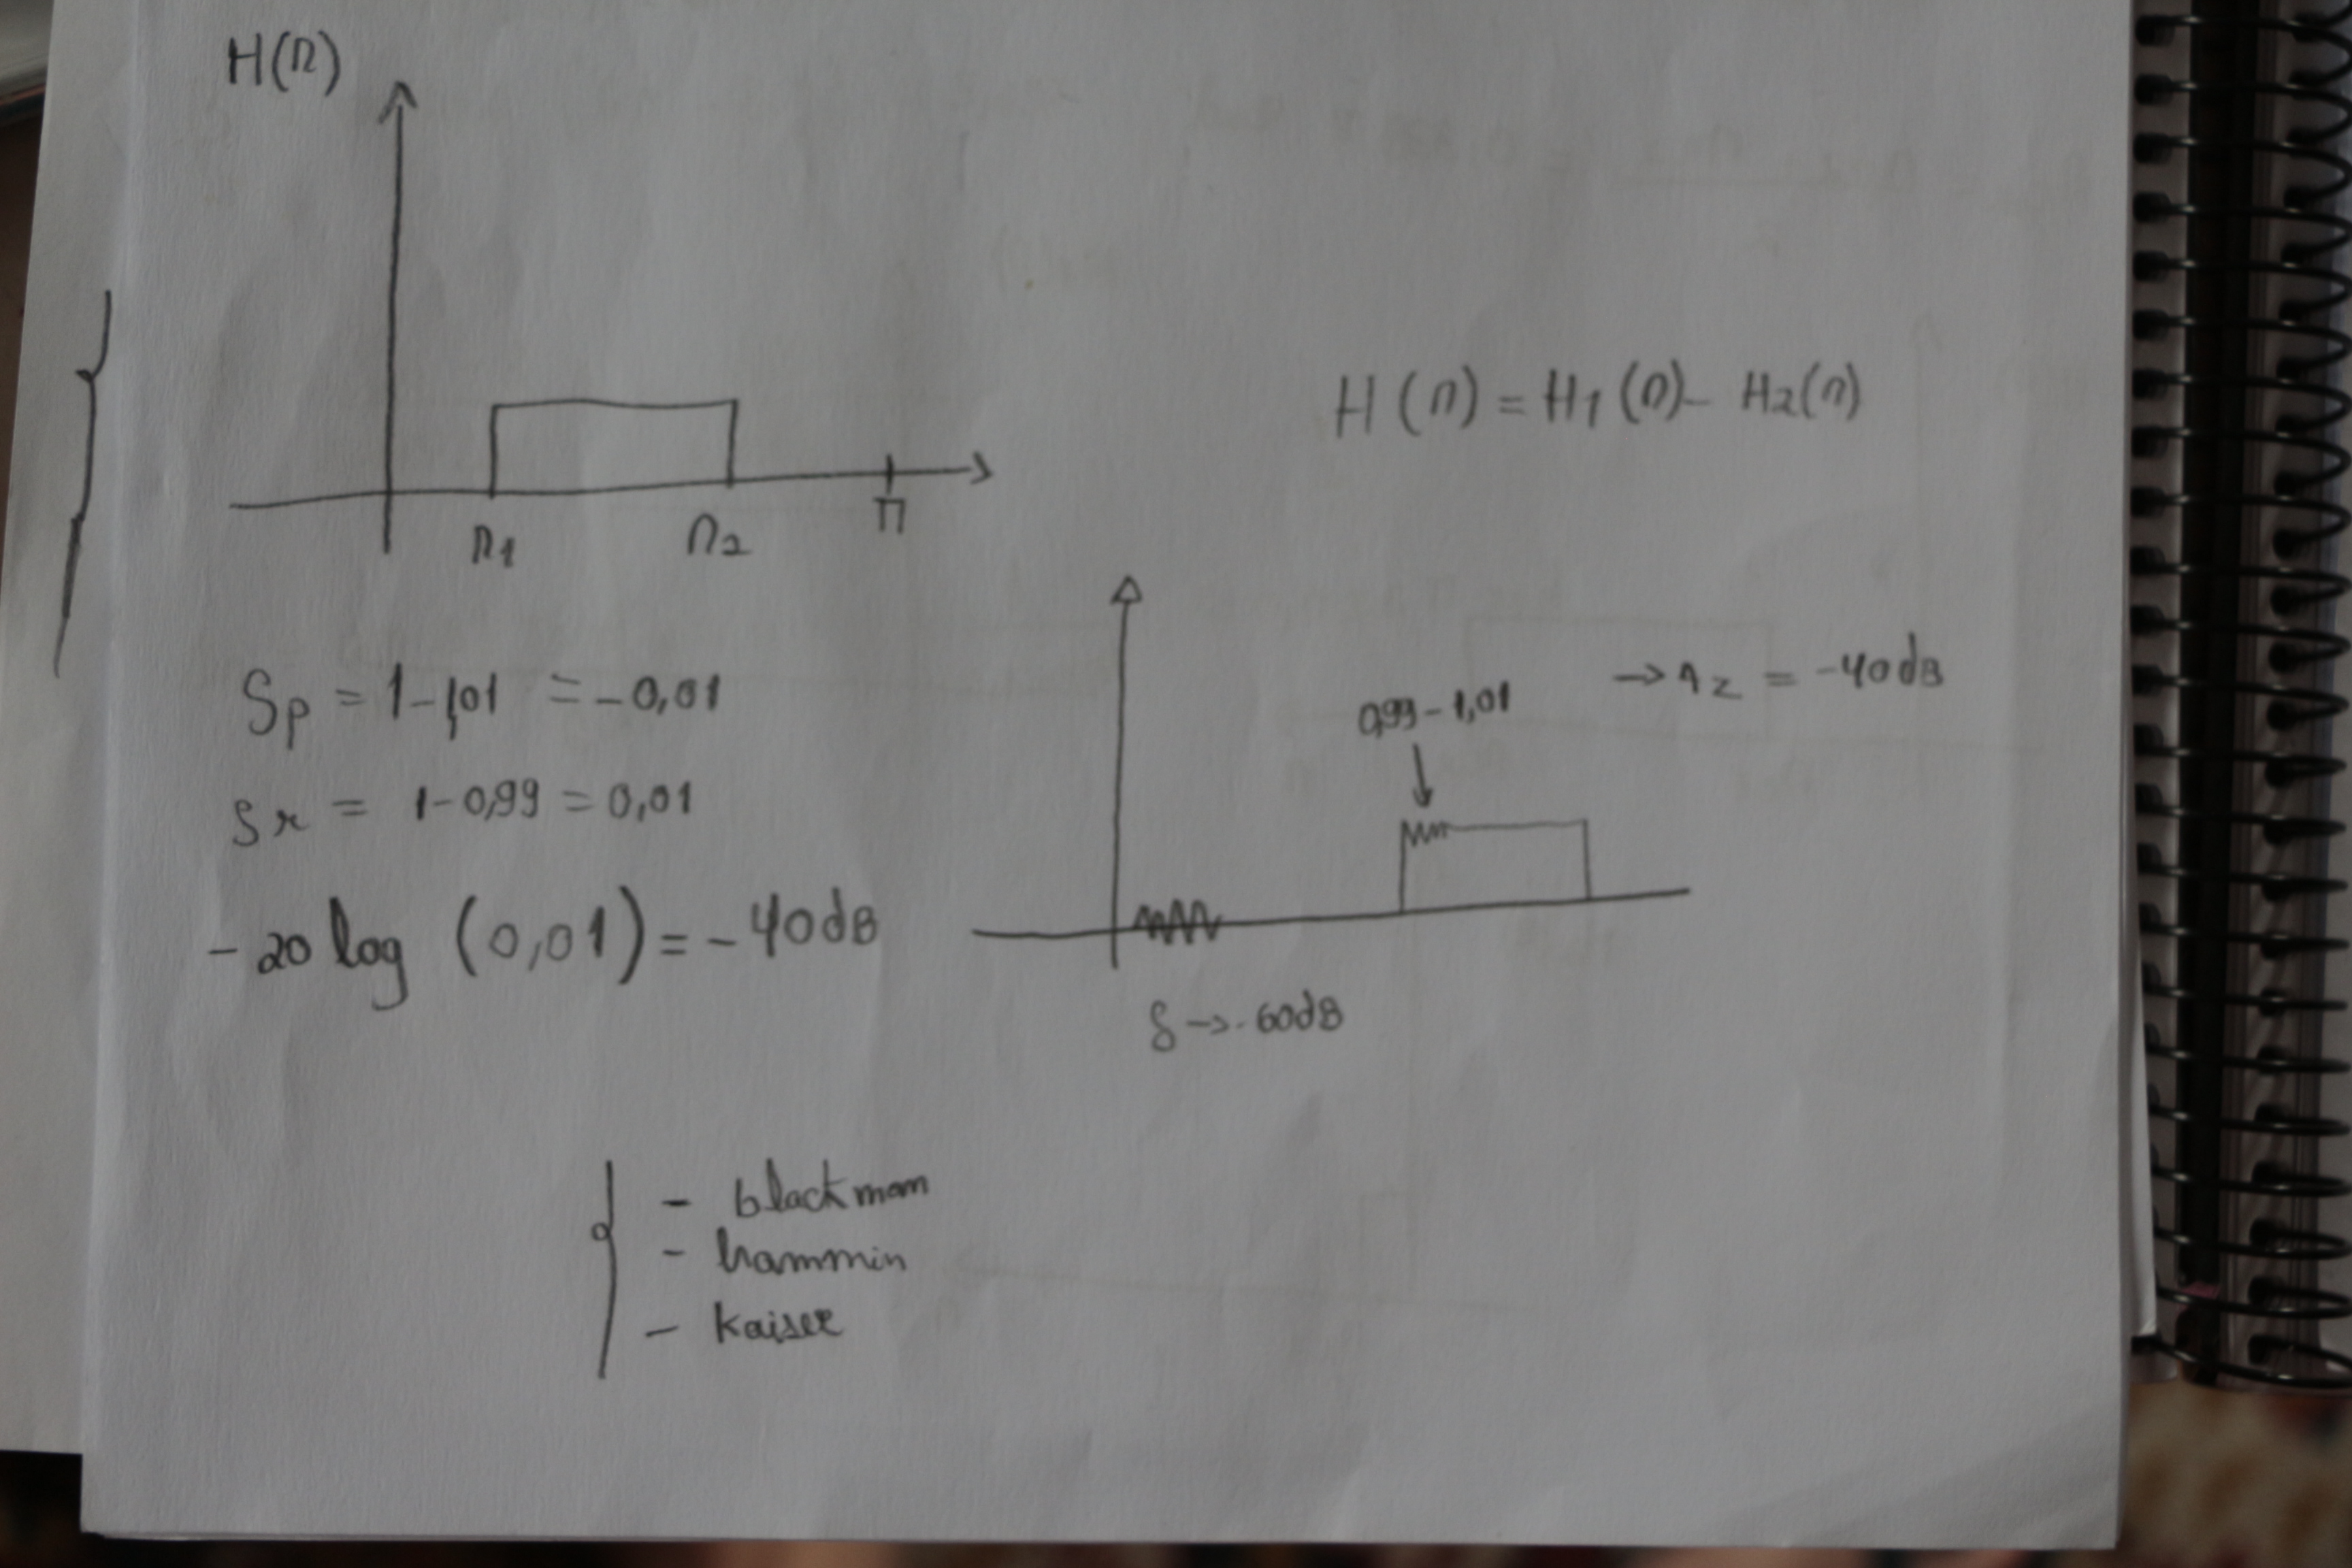 H(Ω)
Ω1 Ω2 π
H(Ω) = H1(Ω) - H2(Ω)
Sp = 1-1,01 = -0,01
Sr = 1-0,99 = 0,01
-20 log (0,01) = -40dB
0,99-1,01
→ Az = -40dB
δ → -60dB
- blackman
- hammin
- kaiser